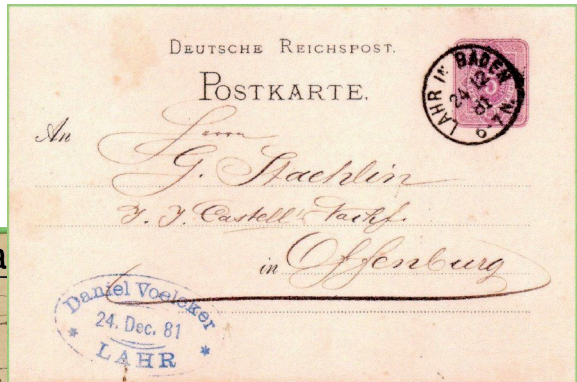 DEUTSCHE REICHSPOST.
POSTKARTE.
LAHR IN BADEN
24 12
81
6-7N.
An
Herrn
G. Staehlin
J. J. Castell's Nachf.
in Offenburg
Daniel Voelcker
24. Dec. 81
LAHR